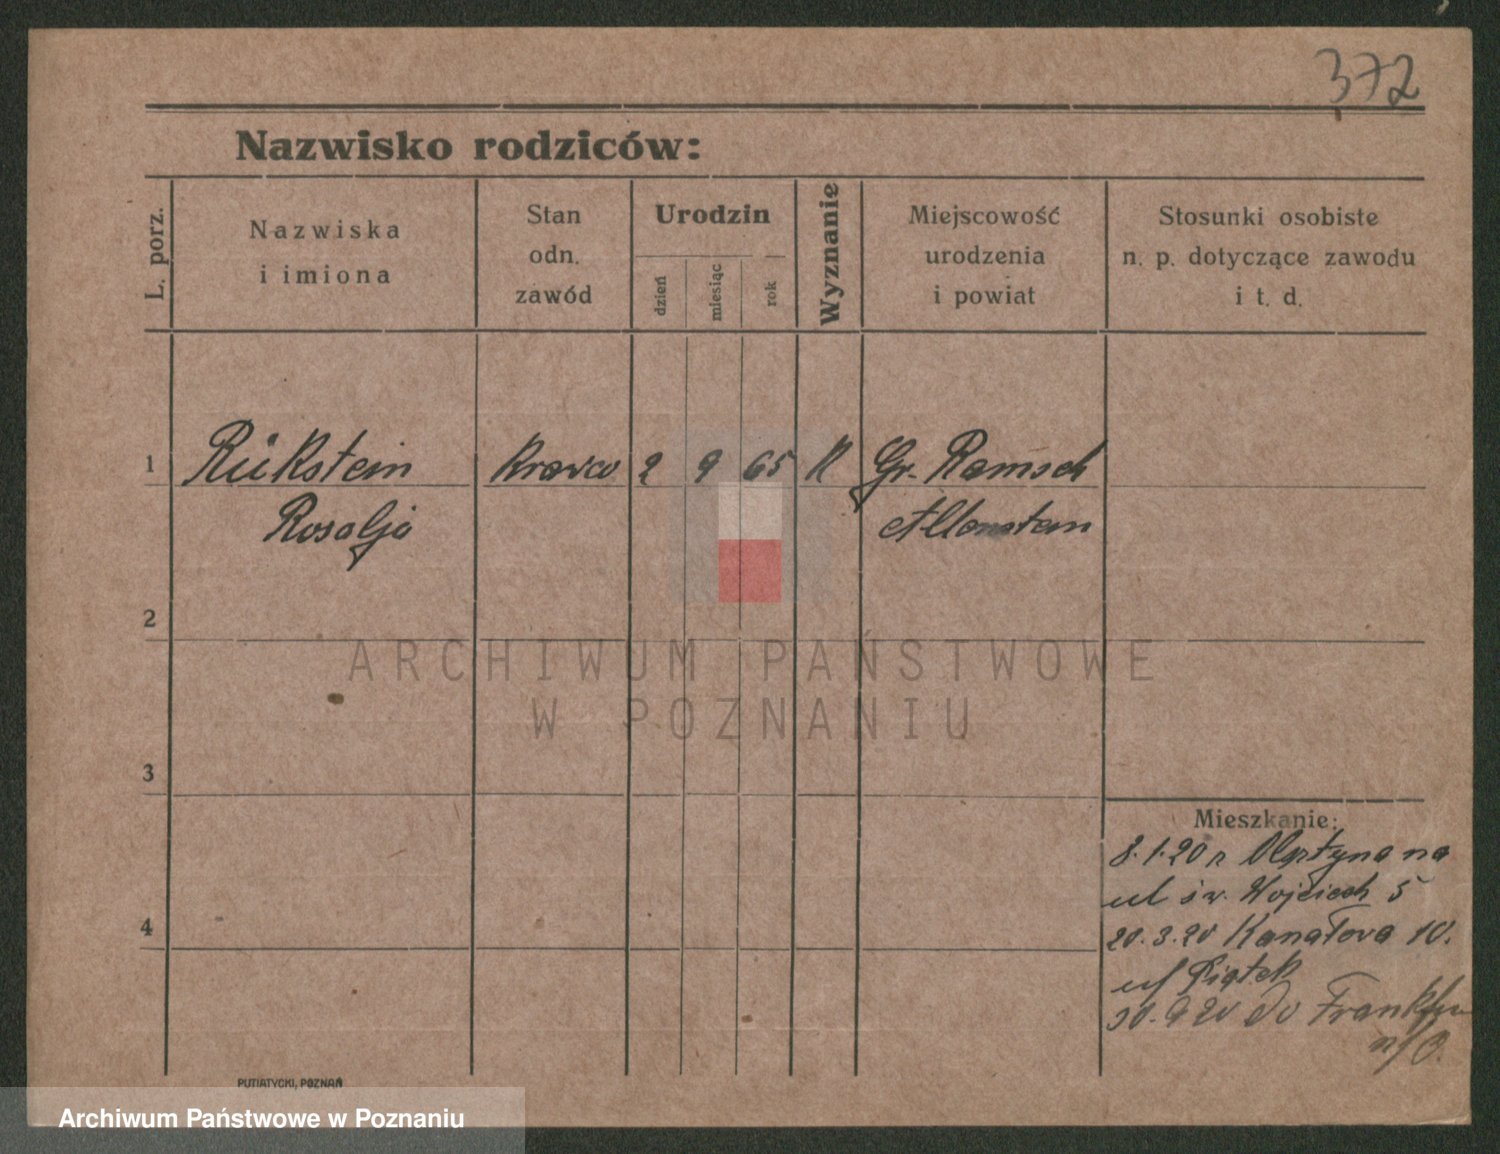 372
Nazwisko rodziców:
L. porz.
Nazwiska
i imiona
Stan
odn.
zawód
Urodzin
dzień
miesiąc
rok
Wyznanie
Miejscowość
urodzenia
i powiat
Stosunki osobiste
n. p. dotyczące zawodu
i t. d.
1
Rükstein
Rosalja
2 9 65 K
Gr. Ramsch
Allenstein
2
3
4
ARCHIWUM PAŃSTWOWE
W POZNANIU
Mieszkanie:
8.1.20 z Olsztyna na
ul św. Wojciech 5
20.3.20 Kanałowa 10.
Piątek
30.9 20 do Frankfur
n/O.
PUTIATYCKI, POZNAŃ
Archiwum Państwowe w Poznaniu